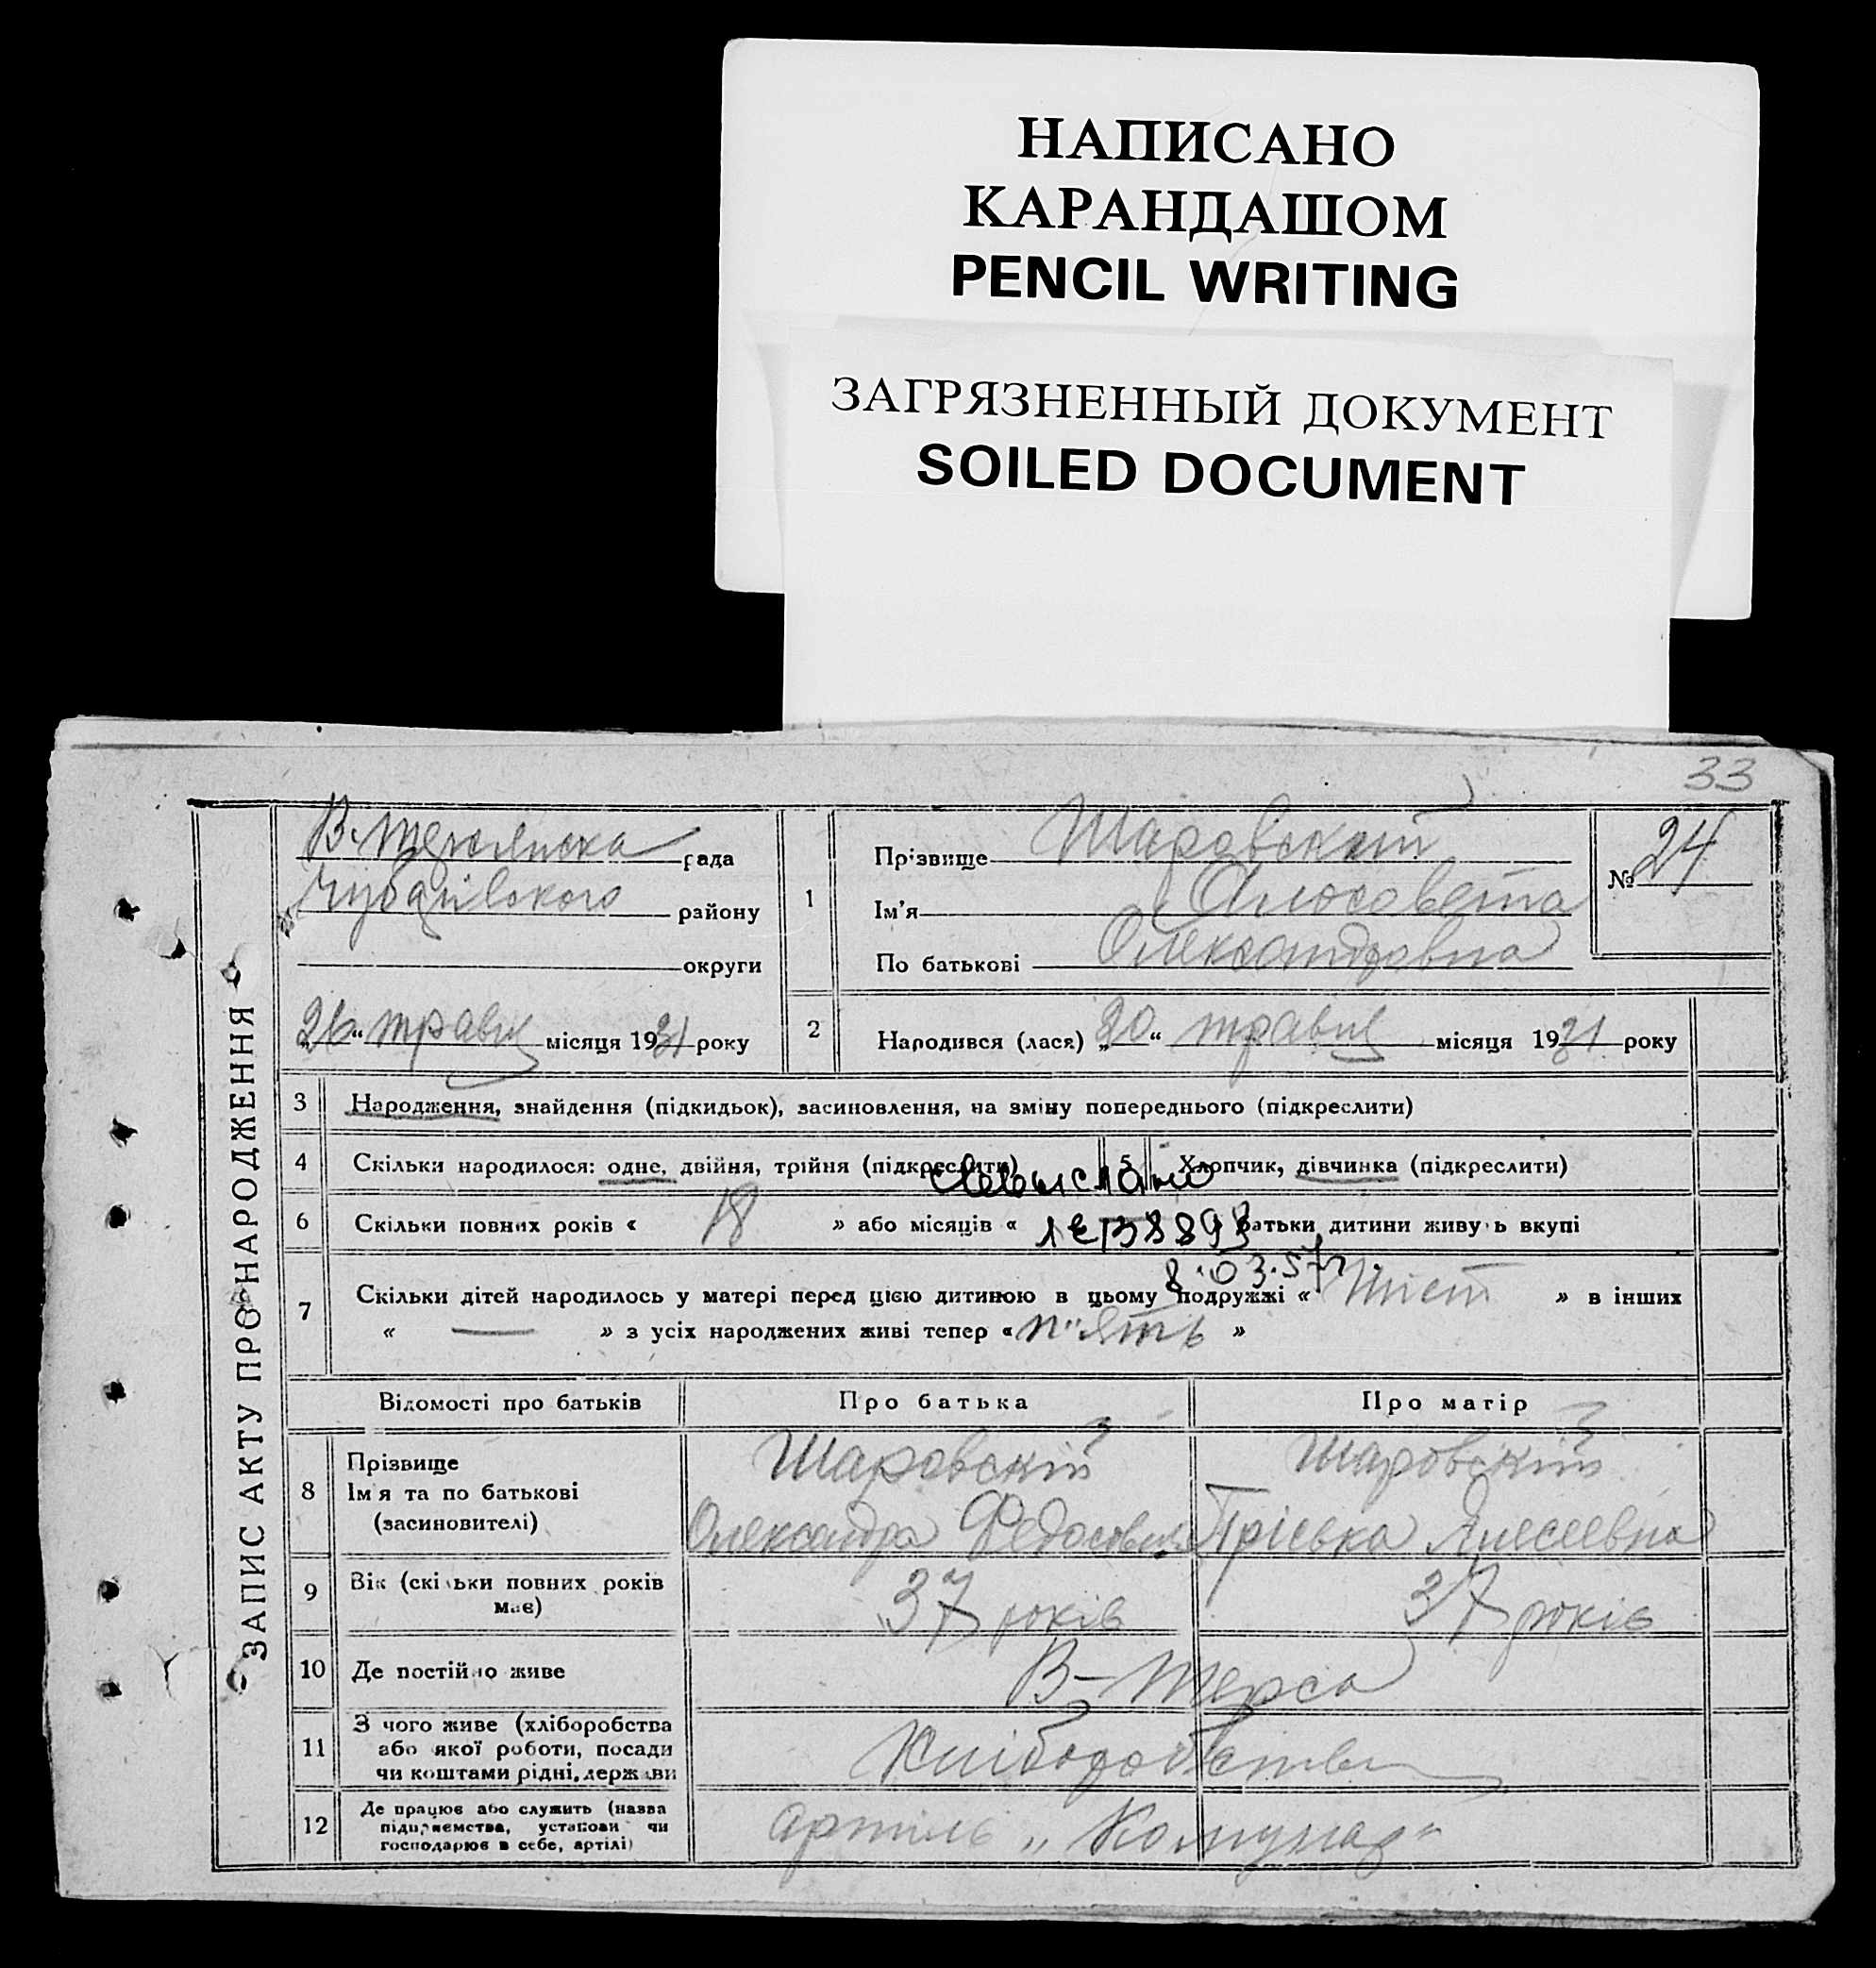 НАПИСАНО
КАРАНДАШОМ
PENCIL WRITING
ЗАГРЯЗНЕННЫЙ ДОКУМЕНТ
SOILED DOCUMENT
33
ЗАПИС АКТУ ПРО НАРОДЖЕННЯ
рада
району
округи
„26“ травня місяця 1931 року
1
Прізвище Шаровский
Ім'я
По батькові Олександровна
№ 24
2
Народився (лася) „20“ травня місяця 1931 року
3 Народження, знайдення (підкидьок), засиновлення, на зміну попереднього (підкреслити)
4 Скільки народилося: одне, двійня, трійня (підкреслити)
5 Хлопчик, дівчинка (підкреслити)
6 Скільки повних років « 18 » або місяців « батьки дитини живуть вкупі
8.03.57г.
7 Скільки дітей народилось у матері перед цією дитиною в цьому подружжі « шіст » в інших
« — » з усіх народжених живі тепер « п"ять »
Відомості про батьків Про батька Про матір
8 Прізвище
Ім'я та по батькові
(засиновителі)
Шаровскій
Олександра
Шаровскій
Пріська
9 Вік (скільки повних років
має)
37 років 37 років
10 Де постійно живе В-Терса
11 З чого живе (хліборобства
або якої роботи, посади
чи коштами рідні, держави
Хліборобство
12 Де працює або служить (назва
підприємства, установи чи
господарює в себе, артілі)
артиль „Комунар“